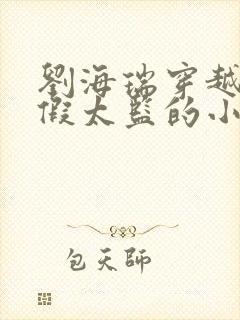 劉海瑞穿越
假太監的小
包天師